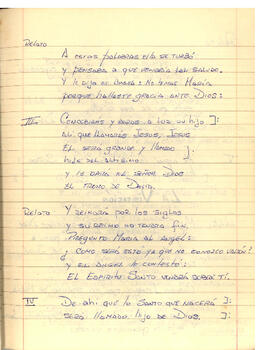 Relato
A estas palabras ella se turbó
y pensaba a que vendria tal saludo.
y le dijo el angel: No temas Maria
porque hallaste gracia ante Dios:
III- Concebirás y darás a luz un hijo ]:
al que llamarás Jesus, Jesus
El será grande y llamado ]:
hijo del altisimo
y le dará el señor Dios
el trono de David.
Relato Y reinará por los siglos
y su reino no tendrá fin.
Pregunto Maria al angel:
¿Como será esto ya que no conozco varón?
y el angel le contestó:
El Espiritu Santo vendrá sobre tí.
IV De ahi que lo Santo que nacerá ]:
será llamado hijo de Dios. ]: